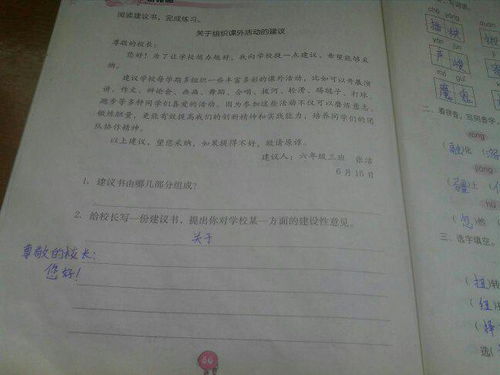 阅读建议书,完成练习。
关于组织课外活动的建议
尊敬的校长:
您好!为了让学校越办越好,我向学校提一点建议,希望能够采
纳。
建议学校每学期多组织一些丰富多彩的课外活动,比如可以开展演
讲、作文、辩论会、画画、舞蹈、合唱、拔河、轮滑、踢毽子、打球、
跑步等多种同学们喜爱的活动。因为参加这些活动不仅可以磨活意志、
锻炼胆量,更能有效提高我们的创新精神和实践能力,培养同学们的团
队协作精神。
以上建议,望您采纳,如果提得不好,敬请原谅。
建议人:六年级三班 张洁
6月15日
1. 建议书由哪几部分组成?
2. 给校长写一份建议书,提出你对学校某一方面的建设性意见。
关于
尊敬的校长:
您好!
二、看拼音,写同音字。
róng
jiāng
hū
三、选字填空。